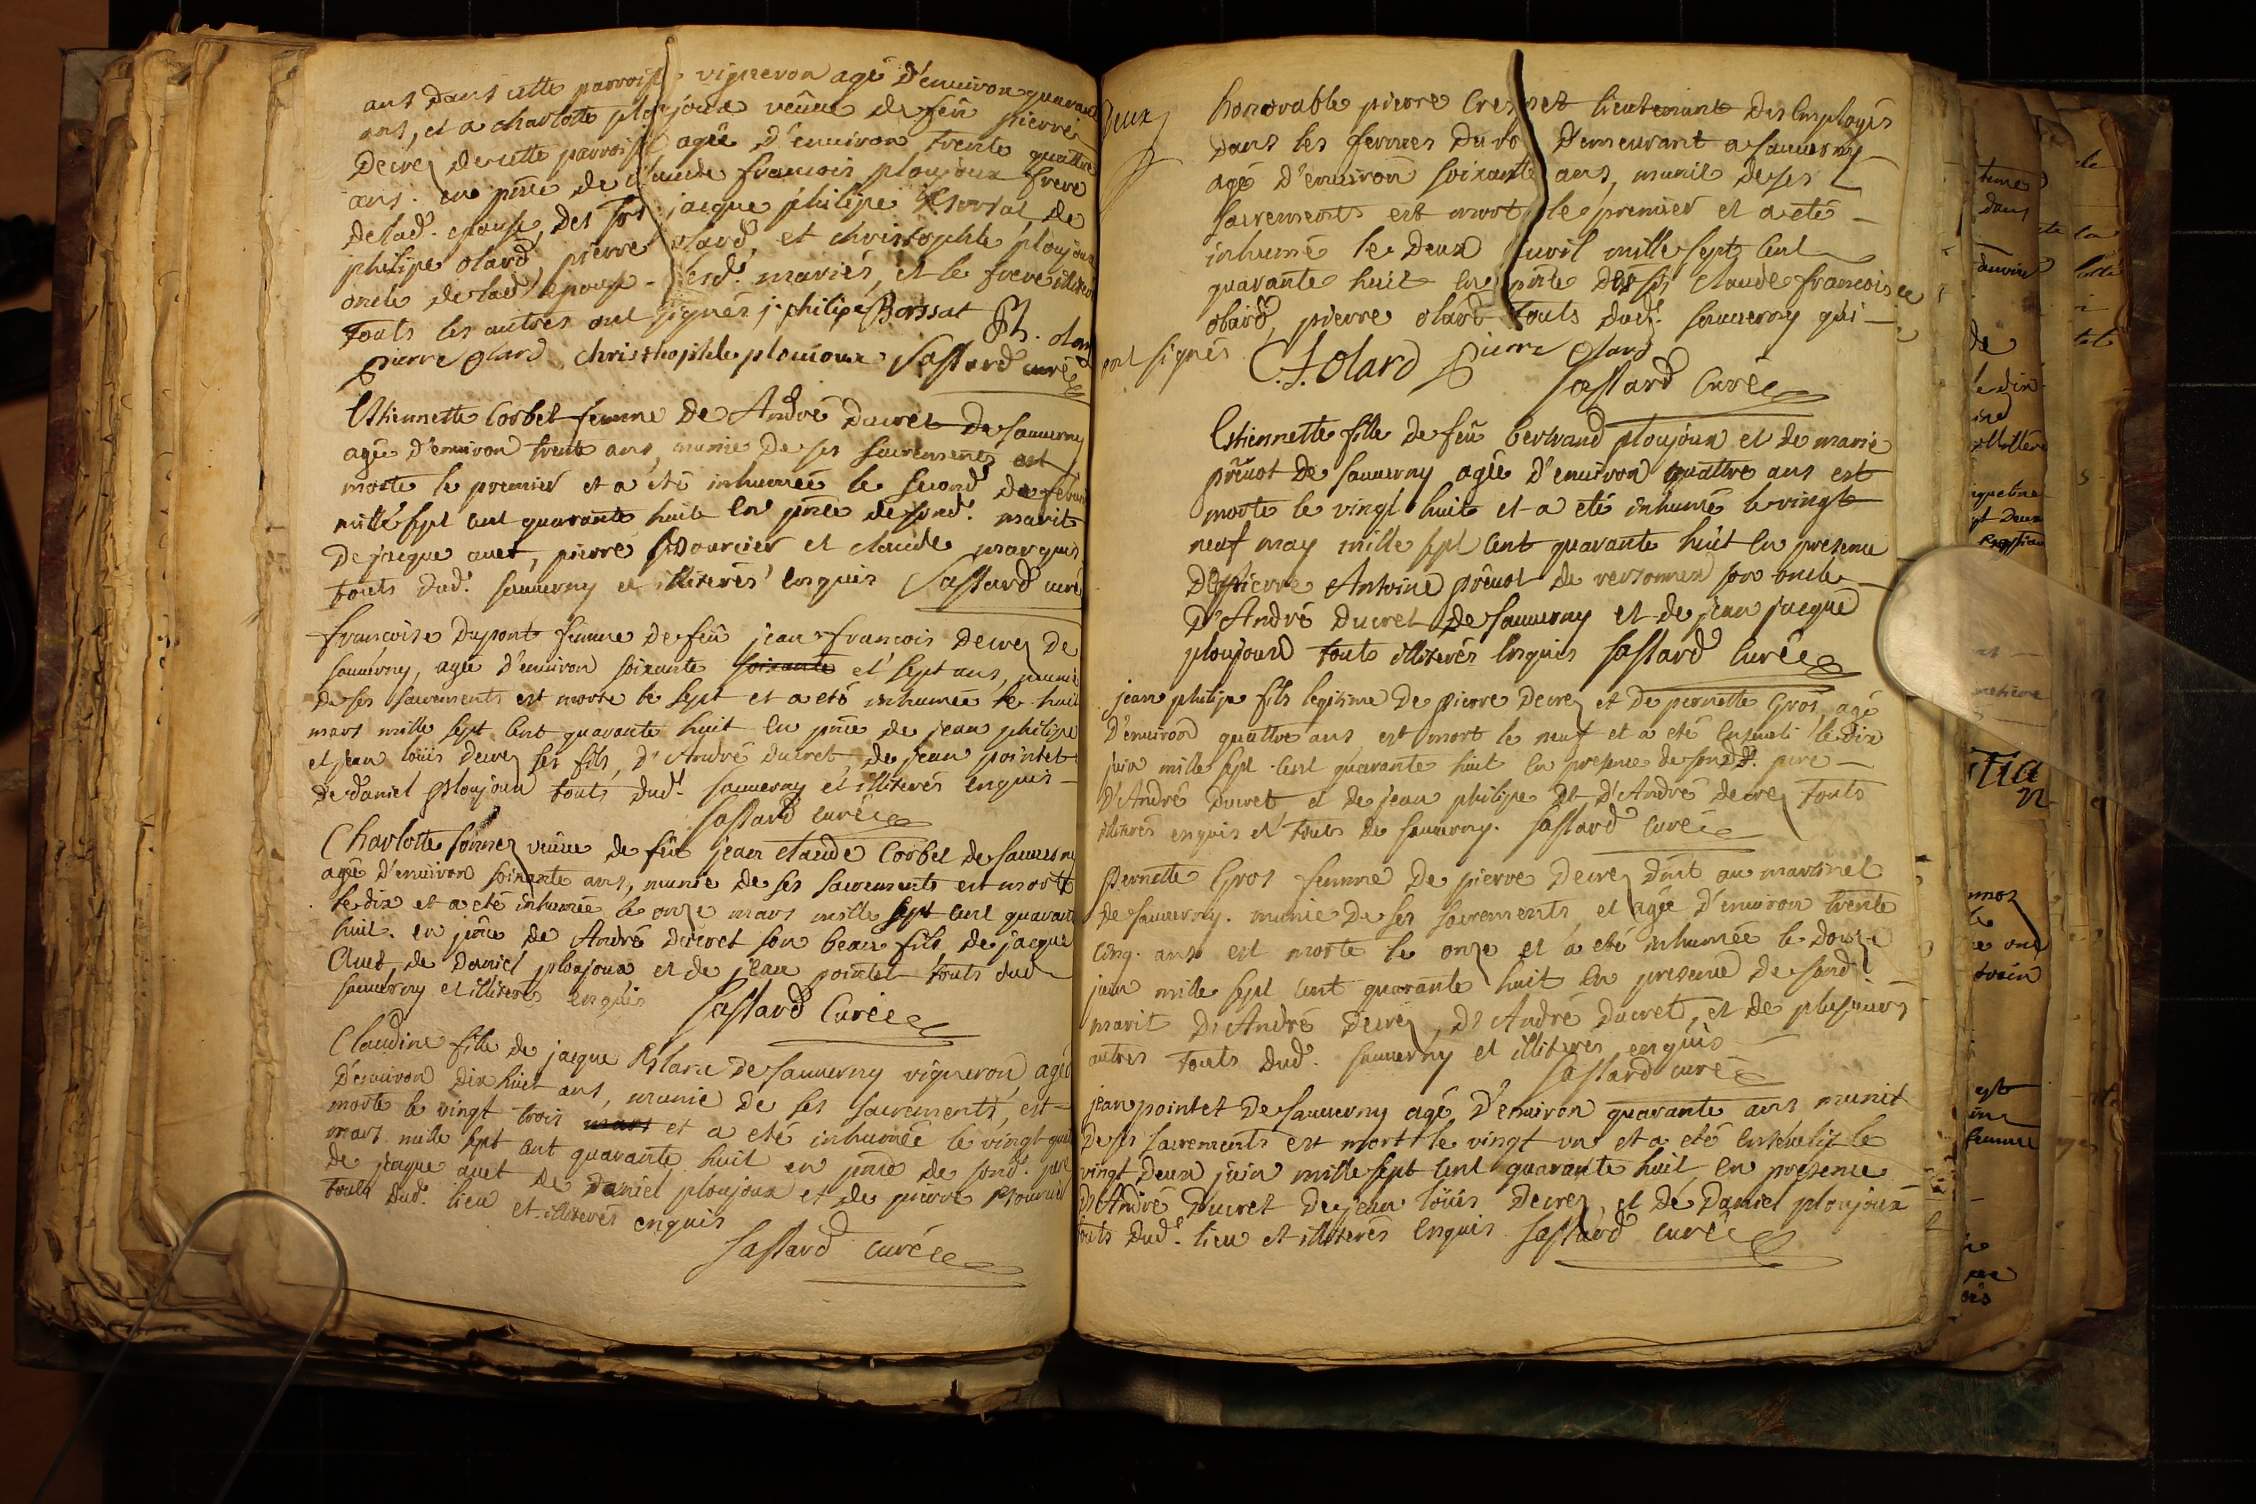 ans dans cette parroisse vigneron agé d'environ quarante
ans, et a charlotte ploujoux veûve de feû pierre
Decrez de cette parroisse agée d'environ trente quattre
ans. en pñce de claude francois ploujoux frere
de lad. epouse, des srs jacque philipe de
philipe olard pierre olard, et christophle ploujoux
oncle de lad. epouse lesd. mariés, et le frere illiteré
touts les autres ont signés j. philipe Borssat Ph. olard
pierre olard christhophle ploujoux Sassard curé
Estiennette Corbet femme de André Ducret de Sauverny
agée d'environ trente ans, munie de ses sacrements est
morte le premier et a été inhumée le second de febur
mille sept cent quarante huit en pñce de sond. marit
De jacque auet, pierre Pournier et claude marquis
touts dud. sauverny et illiterés enquis Sassard curé
francoise Dupont femme de feû jean francois Decrez de
sauverny, agée d'environ soixante soixante et sept ans, munie
de ses sacrements est morte le sept et a eté inhumée le huit
mars mille sept cent quarante huit en pñce de jean philipe
et jean loüis Decrez ses fils, d'André Ducret de jean pointet
de daniel Ploujoux touts dud. sauverny et illiterés enquis
Sassard curé
Charlotte veûve de feû jean claude Corbet de sauverny
agée d'environ soixante ans, munie de ses sacrements est morte
le dix et a eté inhumée le onze mars mille sept cent quarante
huit. en pñce de André Ducret son beau fils de jacque
Auet, de Daniel ploujoux et de jean pointet touts dud
sauverny et illiterés enquis Sassard Curé
Claudine fille de jacque de Sauverny vigneron agée
D'environ dix huit ans, munie de ses sacrements, est
morte le vingt trois mars et a eté inhumée le vingt quatre
mars mille sept cent quarante huit en pñce de sond. pere
de jacque auet de Daniel ploujoux et de pierre Pournier
touts dud. lieu et illiterés enquis
Sassard curé
Deux
honorable pierre lieutenant des Employés
dans les fermes du roi Demeurant a sauverny
agé d'environ soixante ans, munit de ses
sacrements est mort le premier et a eté
inhumé le deux avril mille sept cent
quarante huit en pñce des srs Claude francois
olard, pierre olard touts dud. sauverny qui
ont signés C. f. Olard Pierre Olard
Sassard Curé
Estiennette fille de feû bertrand ploujoux et de marie
prévot de sauverny agée d'environ quattre ans est
morte le vingt huit et a eté inhumé le vingt
neuf may mille sept cent quarante huit en presence
De pierre Antoine prévot de versonnex son oncle
D'André Ducret de sauverny et de jean jacque
ploujoux touts illiterés enquis Sassard curé
jean philipe fils legitime de pierre Decrez et de pernette Gros agé
D'environ quattre ans est mort le neuf et a eté enseveli le dix
juin mille sept cent quarante huit en presence de sond. pere
D'André Ducret et de jean philipe et d'André decrez touts
illiterés enquis et touts de sauverny. Sassard curé
Pernette Gros femme de pierre Decrez dmt au martinet
de sauverny. munie de ses sacrements, et agée d'environ trente
cinq. ans est morte le onze et a eté inhumée le douze
juin mille sept cent quarante huit en presence de sond.
marit D'André Decrez, d'André Ducret, et de plusieurs
autres touts dud. sauverny et illiterés enquis
Sassard curé
jean pointet de sauverny agé d'environ quarante ans munit
de ses sacrements est mort le vingt un et a eté le
vingt deux juin mille sept cent quarante huit en presence
d'André Ducret de jean loüis Decrez et de Daniel ploujoux
touts dud. lieu et illiterés enquis Sassard curé